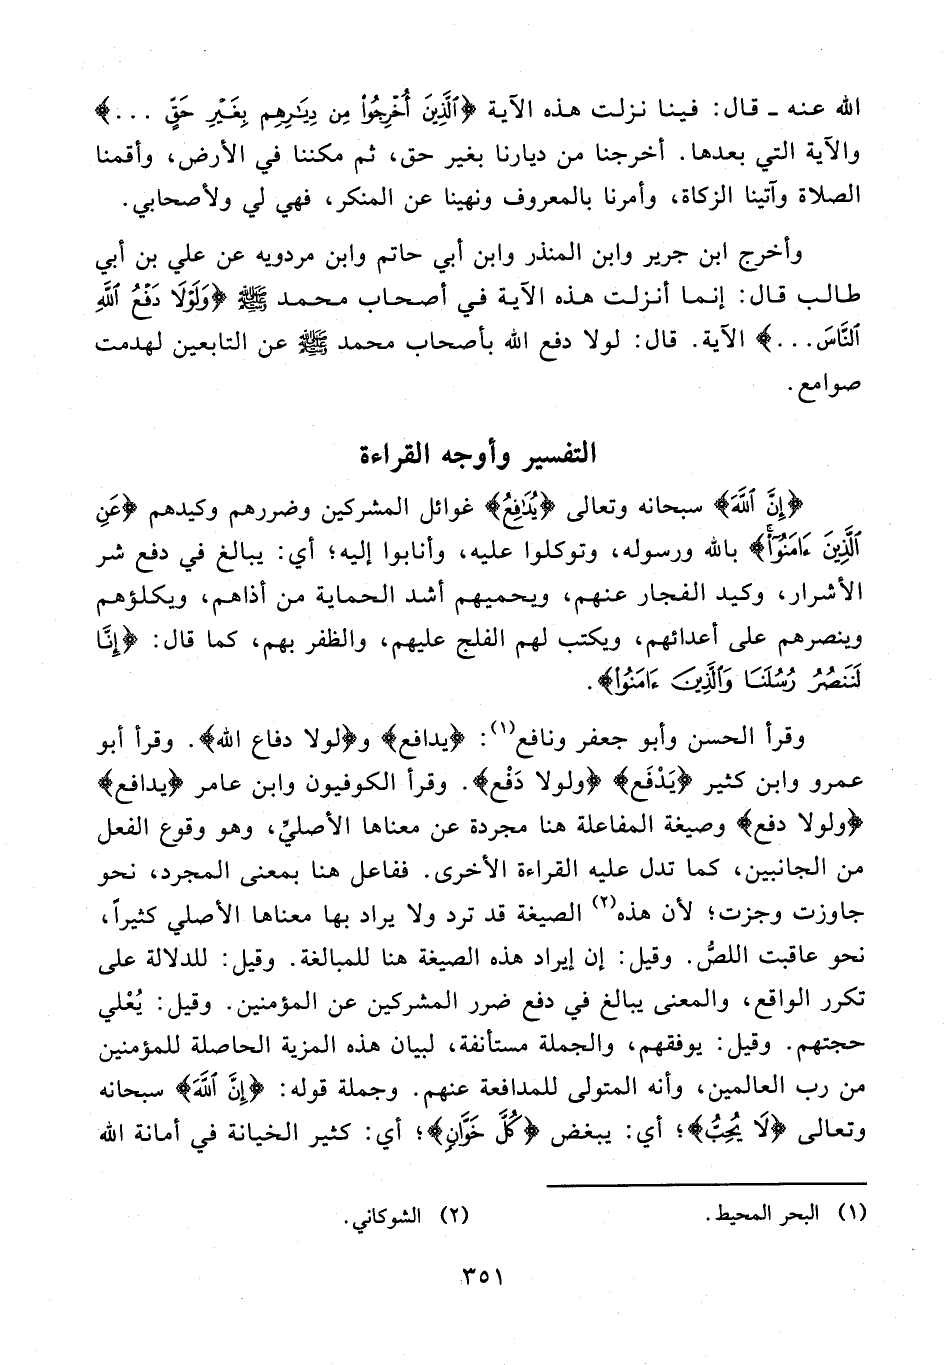 الله عنه ـ قال: فينا نزلت هذه الآية ﴿ٱلَّذِينَ أُخْرِجُوا۟ مِن دِيَـٰرِهِم بِغَيْرِ حَقٍّ ...﴾
والآية التي بعدها. أخرجنا من ديارنا بغير حق، ثم مكننا في الأرض، وأقمنا
الصلاة وآتينا الزكاة، وأمرنا بالمعروف ونهينا عن المنكر، فهي لي ولأصحابي.
وأخرج ابن جرير وابن المنذر وابن أبي حاتم وابن مردويه عن علي بن أبي
طالب قال: إنما أنزلت هذه الآية في أصحاب محمد ﷺ ﴿وَلَوْلَا دَفْعُ ٱللَّهِ
ٱلنَّاسَ...﴾ الآية. قال: لولا دفع الله بأصحاب محمد ﷺ عن التابعين لهدمت
صوامع.
التفسير وأوجه القراءة
﴿إِنَّ ٱللَّهَ﴾ سبحانه وتعالى ﴿يُدَٰفِعُ﴾ غوائل المشركين وضررهم وكيدهم ﴿عَنِ
ٱلَّذِينَ ءَامَنُوٓا۟ۗ﴾ بالله ورسوله، وتوكلوا عليه، وأنابوا إليه؛ أي: يبالغ في دفع شر
الأشرار، وكيد الفجار عنهم، ويحميهم أشد الحماية من أذاهم، ويكلؤهم
وينصرهم على أعدائهم، ويكتب لهم الفلج عليهم، والظفر بهم، كما قال: ﴿إِنَّا
لَنَنصُرُ رُسُلَنَا وَٱلَّذِينَ ءَامَنُوا۟﴾.
وقرأ الحسن وأبو جعفر ونافع(١): ﴿يدافع﴾ و﴿لولا دفاع الله﴾. وقرأ أبو
عمرو وابن كثير ﴿يَدْفَع﴾ ﴿ولولا دَفْع﴾. وقرأ الكوفيون وابن عامر ﴿يدافع﴾
﴿ولولا دفع﴾ وصيغة المفاعلة هنا مجردة عن معناها الأصليِّ، وهو وقوع الفعل
من الجانبين، كما تدل عليه القراءة الأخرى. ففاعل هنا بمعنى المجرد، نحو
جاوزت وجزت؛ لأن هذه(٢) الصيغة قد ترد ولا يراد بها معناها الأصلي كثيراً،
نحو عاقبت اللصُّ. وقيل: إن إيراد هذه الصيغة هنا للمبالغة. وقيل: للدلالة على
تكرر الواقع، والمعنى يبالغ في دفع ضرر المشركين عن المؤمنين. وقيل: يُعْلي
حجتهم. وقيل: يوفقهم، والجملة مستأنفة، لبيان هذه المزية الحاصلة للمؤمنين
من رب العالمين، وأنه المتولى للمدافعة عنهم. وجملة قوله: ﴿إِنَّ ٱللَّهَ﴾ سبحانه
وتعالى ﴿لَا يُحِبُّ﴾؛ أي: يبغض ﴿كُلَّ خَوَّانٍ﴾؛ أي: كثير الخيانة في أمانة الله
(١) البحر المحيط. (٢) الشوكاني.
٣٥١